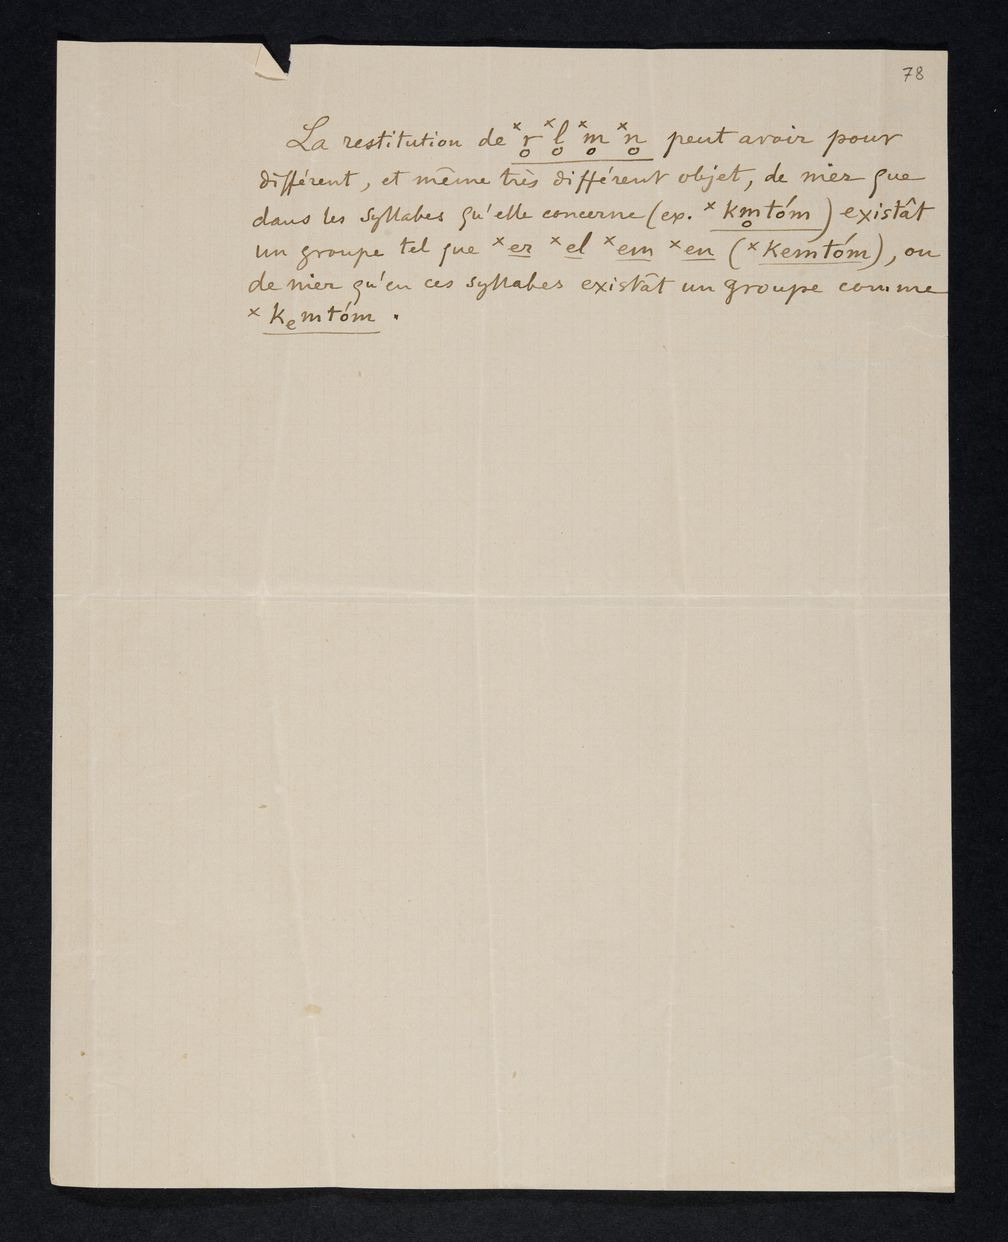 78
La restitution de ˣr̥ ˣl̥ ˣm̥ ˣn̥ peut avoir pour
différent, et même très différent objet, de nier que
dans les syllabes qu'elle concerne (ex. ˣkm̥tóm) existât
un groupe tel que ˣer ˣel ˣem ˣen (ˣkemtóm), ou
de nier qu'en ces syllabes existât un groupe comme
ˣkₑmtóm.